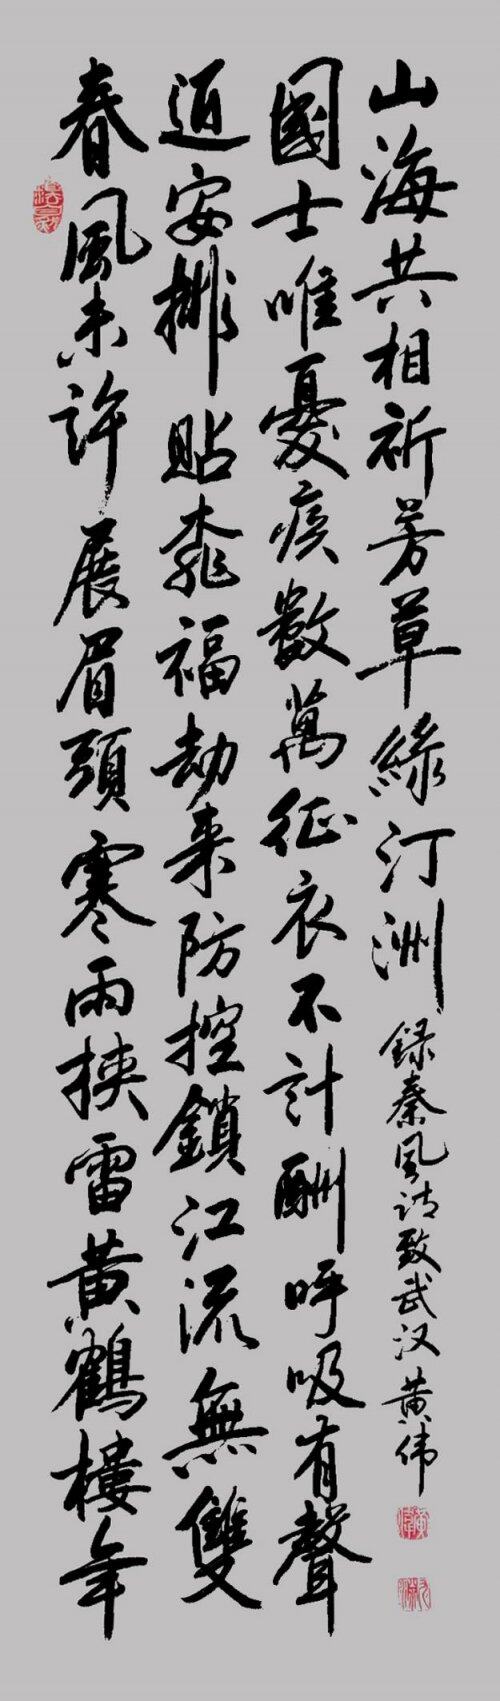 春風未許展眉頭寒雨挟雷黄鶴樓年
安排貼桃福劫来防控鎖江流無雙
國士唯憂疾數萬征衣不計酬呼吸有聲
山海共相祈芳草綠汀洲
録秦風诗致武汉黄伟